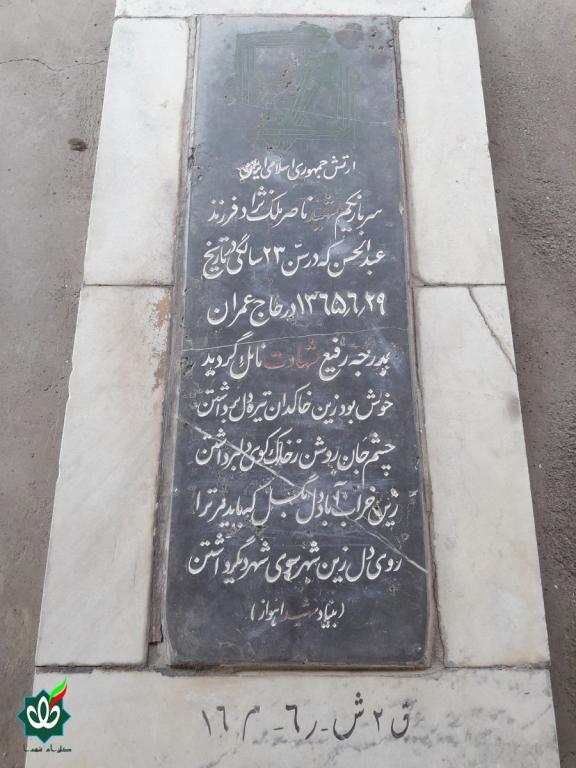 ارتش جمهوری اسلامی ایران
سرباز یکم شهید ناصر ملک نژاد فرزند
عبدالحسن که در سن ۲۳ سالگی در تاریخ
۱۳۶۵/۶/۲۹ در حاج عمران
بدرجه رفیع شهادت نائل گردید
خوش بود زین خاکدان تیره دل برداشتن
چشم جان روشن ز خاک کوی دلبر داشتن
زین خراب آباد دل بگسل که باید مر ترا
روی دل زین شهر سوی شهر دیگر داشتن
(بنیاد شهید اهواز)
ق ۲ ش - ر ۶ - م ۱۶
گلزار شهدا